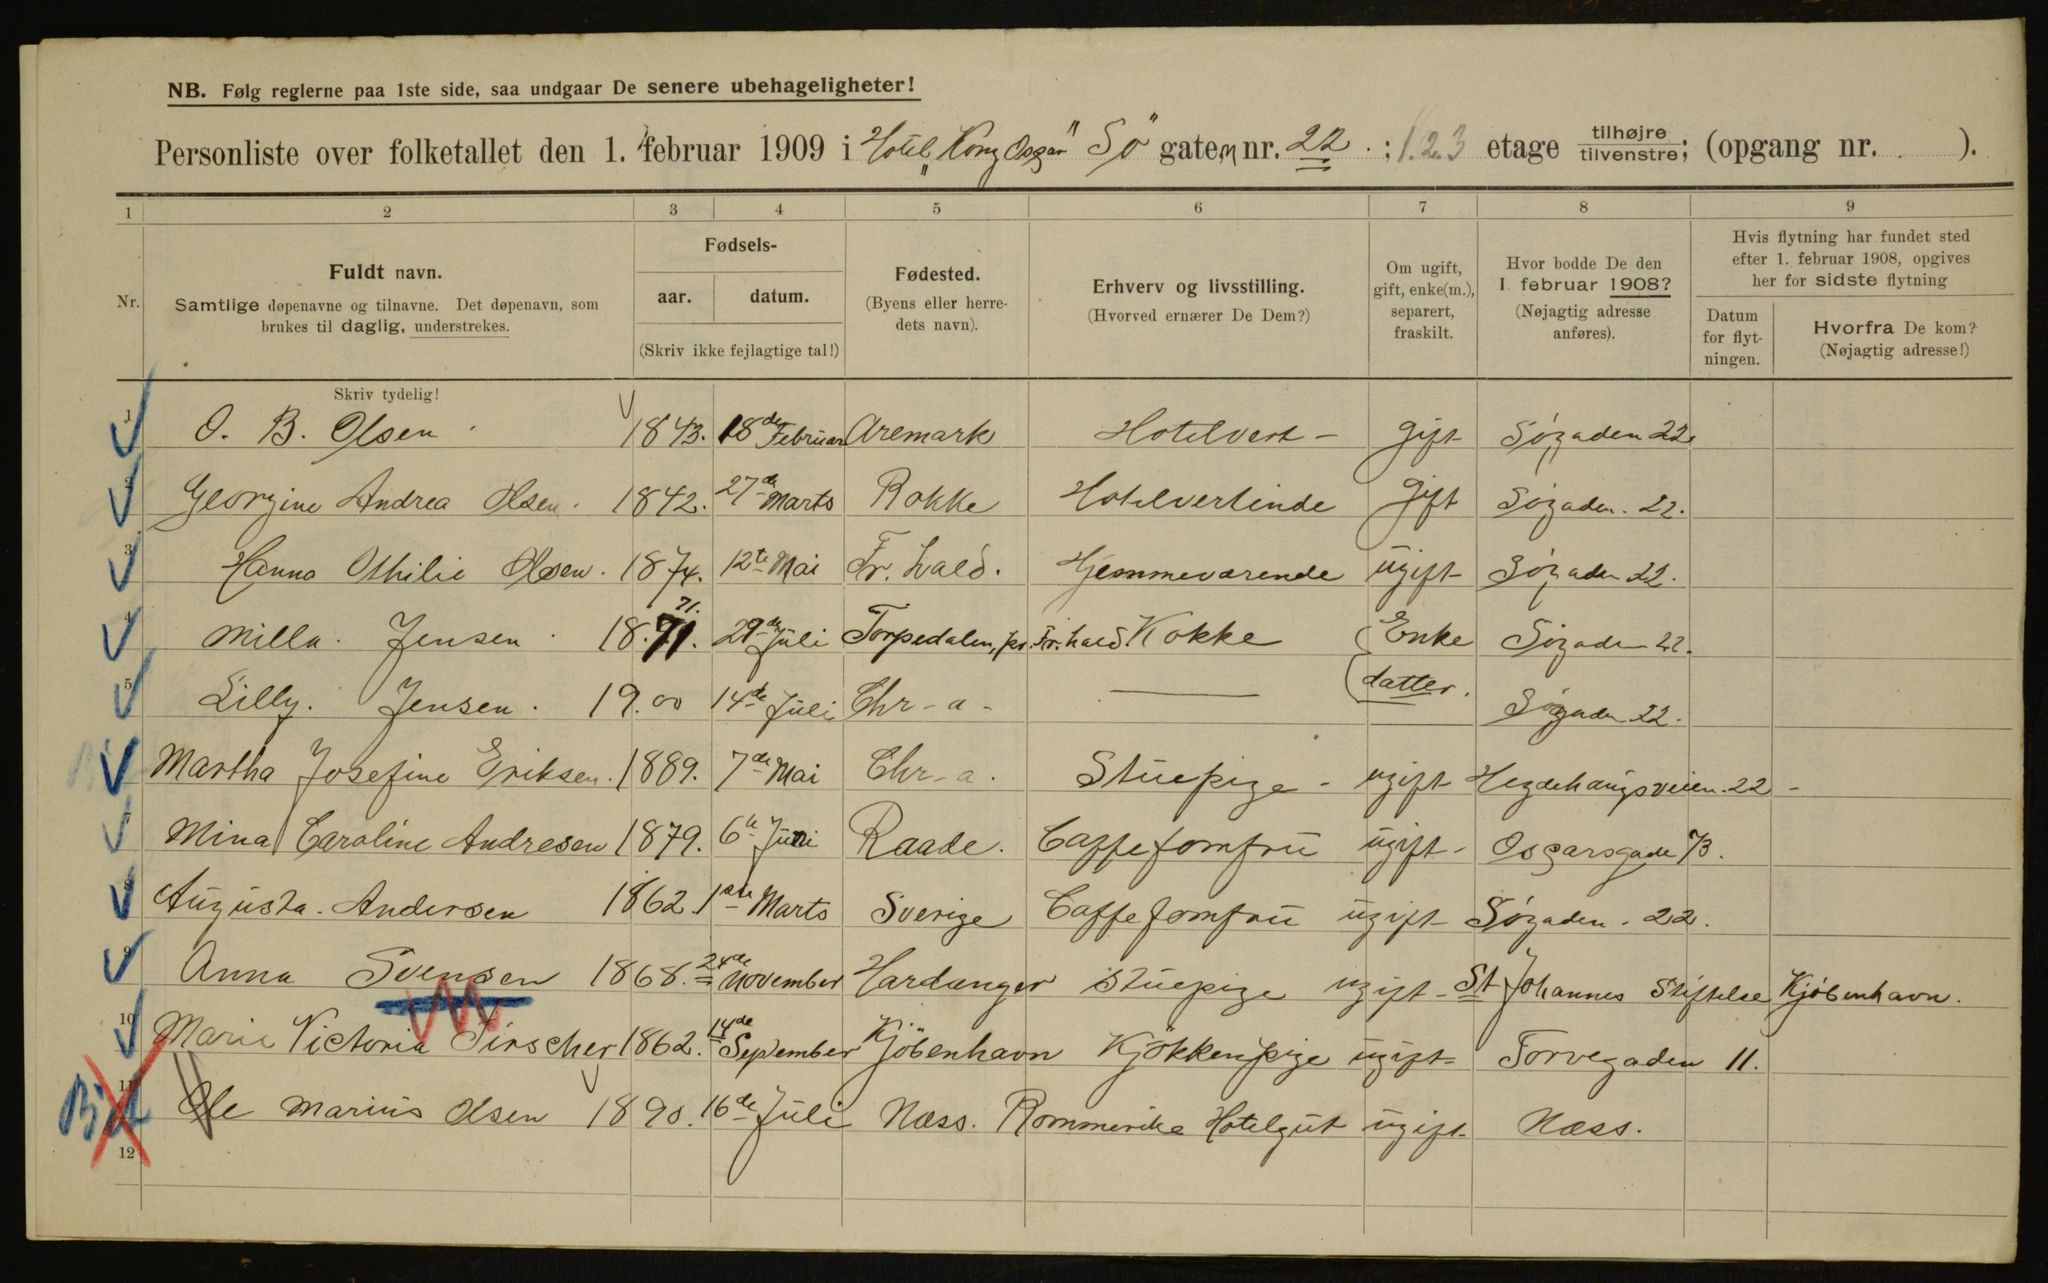 NB. Følg reglerne paa 1ste side, saa undgaar De senere ubehageligheter!
Personliste over folketallet den 1. februar 1909 i Hotel "Kong Oscar" Sø gaten nr. 22. ; 1.2.3 etage tilhøjre/tilvenstre; (opgang nr. ).
1 2 3 4 5 6 7 8 9
Nr.
Fuldt navn.
Samtlige døpenavne og tilnavne. Det døpenavn, som
brukes til daglig, understrekes.
Fødsels-
aar. datum.
(Skriv ikke fejlagtige tal!)
Fødested.
(Byens eller herre-
dets navn).
Erhverv og livsstilling.
(Hvorved ernærer De Dem?)
Om ugift,
gift, enke(m.),
separert,
fraskilt.
Hvor bodde De den
1. februar 1908?
(Nøjagtig adresse
anføres).
Hvis flytning har fundet sted
efter 1. februar 1908, opgives
her for sidste flytning
Datum
for flyt-
ningen.
Hvorfra De kom?
(Nøjagtig adresse!)
Skriv tydelig!
1 O. B. Olsen 1843. 18de Februar Aremark Hotelvert - gift Søgaden 22.
2 Georgine Andrea Olsen. 1842. 27de Marts Rokke Hotelvertinde gift Søgaden. 22.
3 Hanna Othilie Olsen. 1874. 12te Mai Fr. hald. Hjemmeværende ugift Søgaden 22.
71.
4 Milla. Jensen. 18.71. 29de Juli Torpedalen, pr. Fr. hald. Kokke Enke Søgaden 22.
5 Lilly. Jensen. 19.00 14de Juli Chr-a- datter. Søgaden 22.
Martha Josefine Eriksen. 1889. 7de Mai Chr-a. Stuepige - ugift Hegdehaugsveien. 22 -
7 Mina Caroline Andresen 1879. 6te Juni Raade. Caffefomfru ugift - Oscarsgade 73.
8 Augusta. Andersen 1862. 1ste Marts Sverige Caffefomfru ugift Søgaden. 22.
9 Anna Svensen 1868. 24de November Hardanger Stuepige ugift - St Johannes Stiftelse Kjøbenhavn.
10 Marie Victoria Tirscher 1862. 14de September Kjöbenhavn Kjökkenpige ugift - Torvegaden 11.
11 Ole Marius Olsen 1890. 16de Juli Næss. Rommerike Hotelgut ugift - Næss.
12